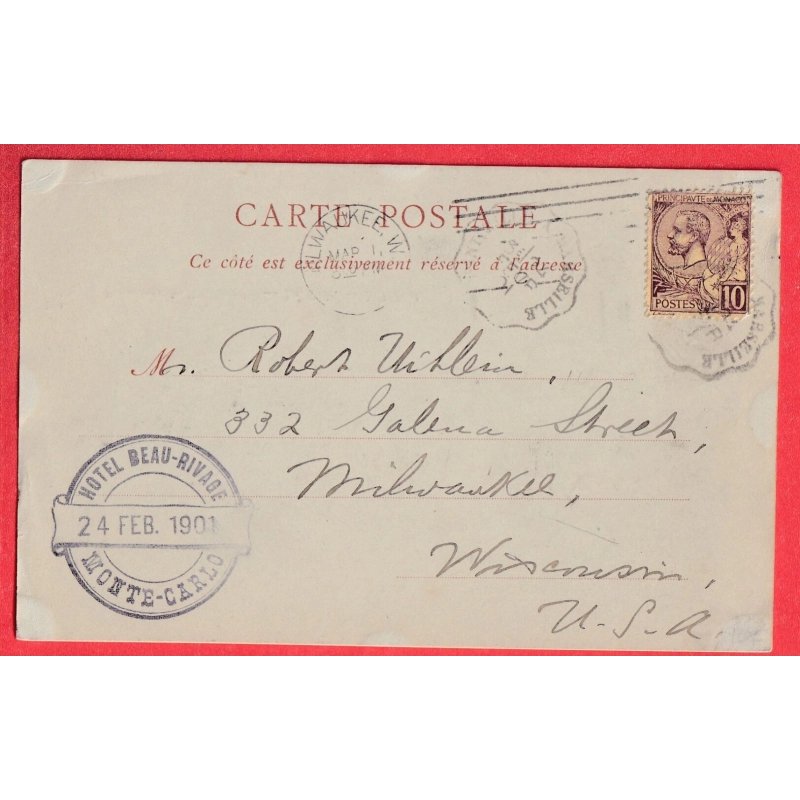 CARTE POSTALE
Ce côté est exclusivement réservé à l'adresse
MILWAUKEE, W
MAR 1
MARSEILLE
PRINCIPAUTÉ DE MONACO
POSTES
10
MARSEILLE
Mr. Robert Uihlein,
332 Galena Street,
Milwaukee,
Wisconsin,
U.S.A.
HOTEL BEAU-RIVAGE
24 FEB. 1901
MONTE-CARLO